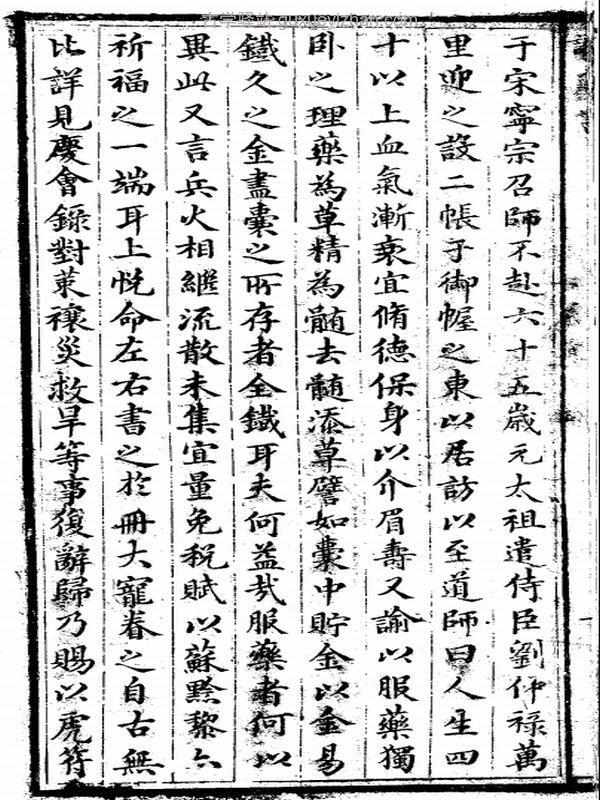 于宋寧宗召師不赴六十五歲元太祖遣侍臣劉仲祿萬
里迎之設二帳于御幄之東以居訪以至道師曰人生四
十以上血氣漸衰宜脩德保身以介眉壽又諭以服藥獨
卧之理藥為草精為髓去髓添草譬如囊中貯金以金易
鐵久之金盡囊之所存者全鐵耳夫何益㢤服藥者何以
異此又言兵火相繼流散未集宜量免稅賦以蘇黔黎六
祈福之一端耳上悅命左右書之於冊大寵眷之自古無
比詳見慶會錄對策禳災救旱等事復辭歸乃賜以虎符